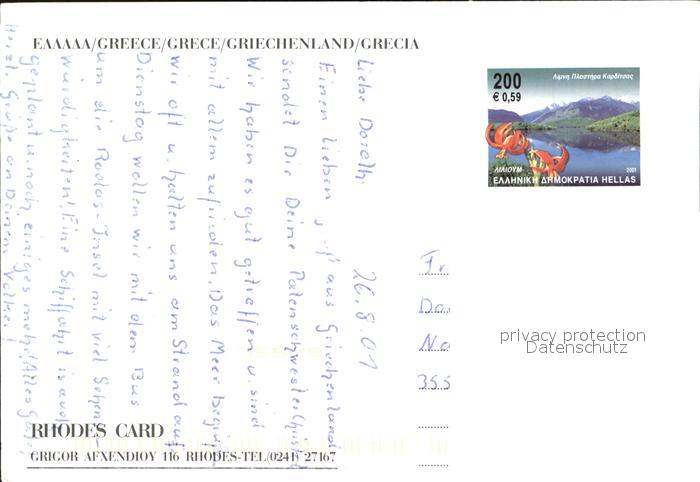 ΕΛΛΑΔΑ/GREECE/GRECE/GRIECHENLAND/GRECIA
26.8.01
Liebe Doroth.
Einen lieben aus Griechenland
sendet Dir Deine Patenschwester
Wir haben es gut getroffen u. sind
mit allem zufrieden. Das Meer
wir oft u. halten uns am Strand auf.
Dienstag wollen wir mit dem Bus
um die Rodos-Insel mit viel Sehens-
würdigkeiten! Eine Schiffahrt ist auch
geplant u. noch einiges mehr! Alles Gute,
Herzl. Grüße an Deinen Volker!
Λίμνη Πλαστήρα Καρδίτσας
200
€ 0,59
ΛΙΛΙΟΥΜ
2001
ΕΛΛΗΝΙΚΗ ΔΗΜΟΚΡΑΤΙΑ HELLAS
Fr
Do
355
privacy protection
Datenschutz
RHODES CARD
GRIGOR AFXENDIOY 116 RHODES-TEL(0241) 27167